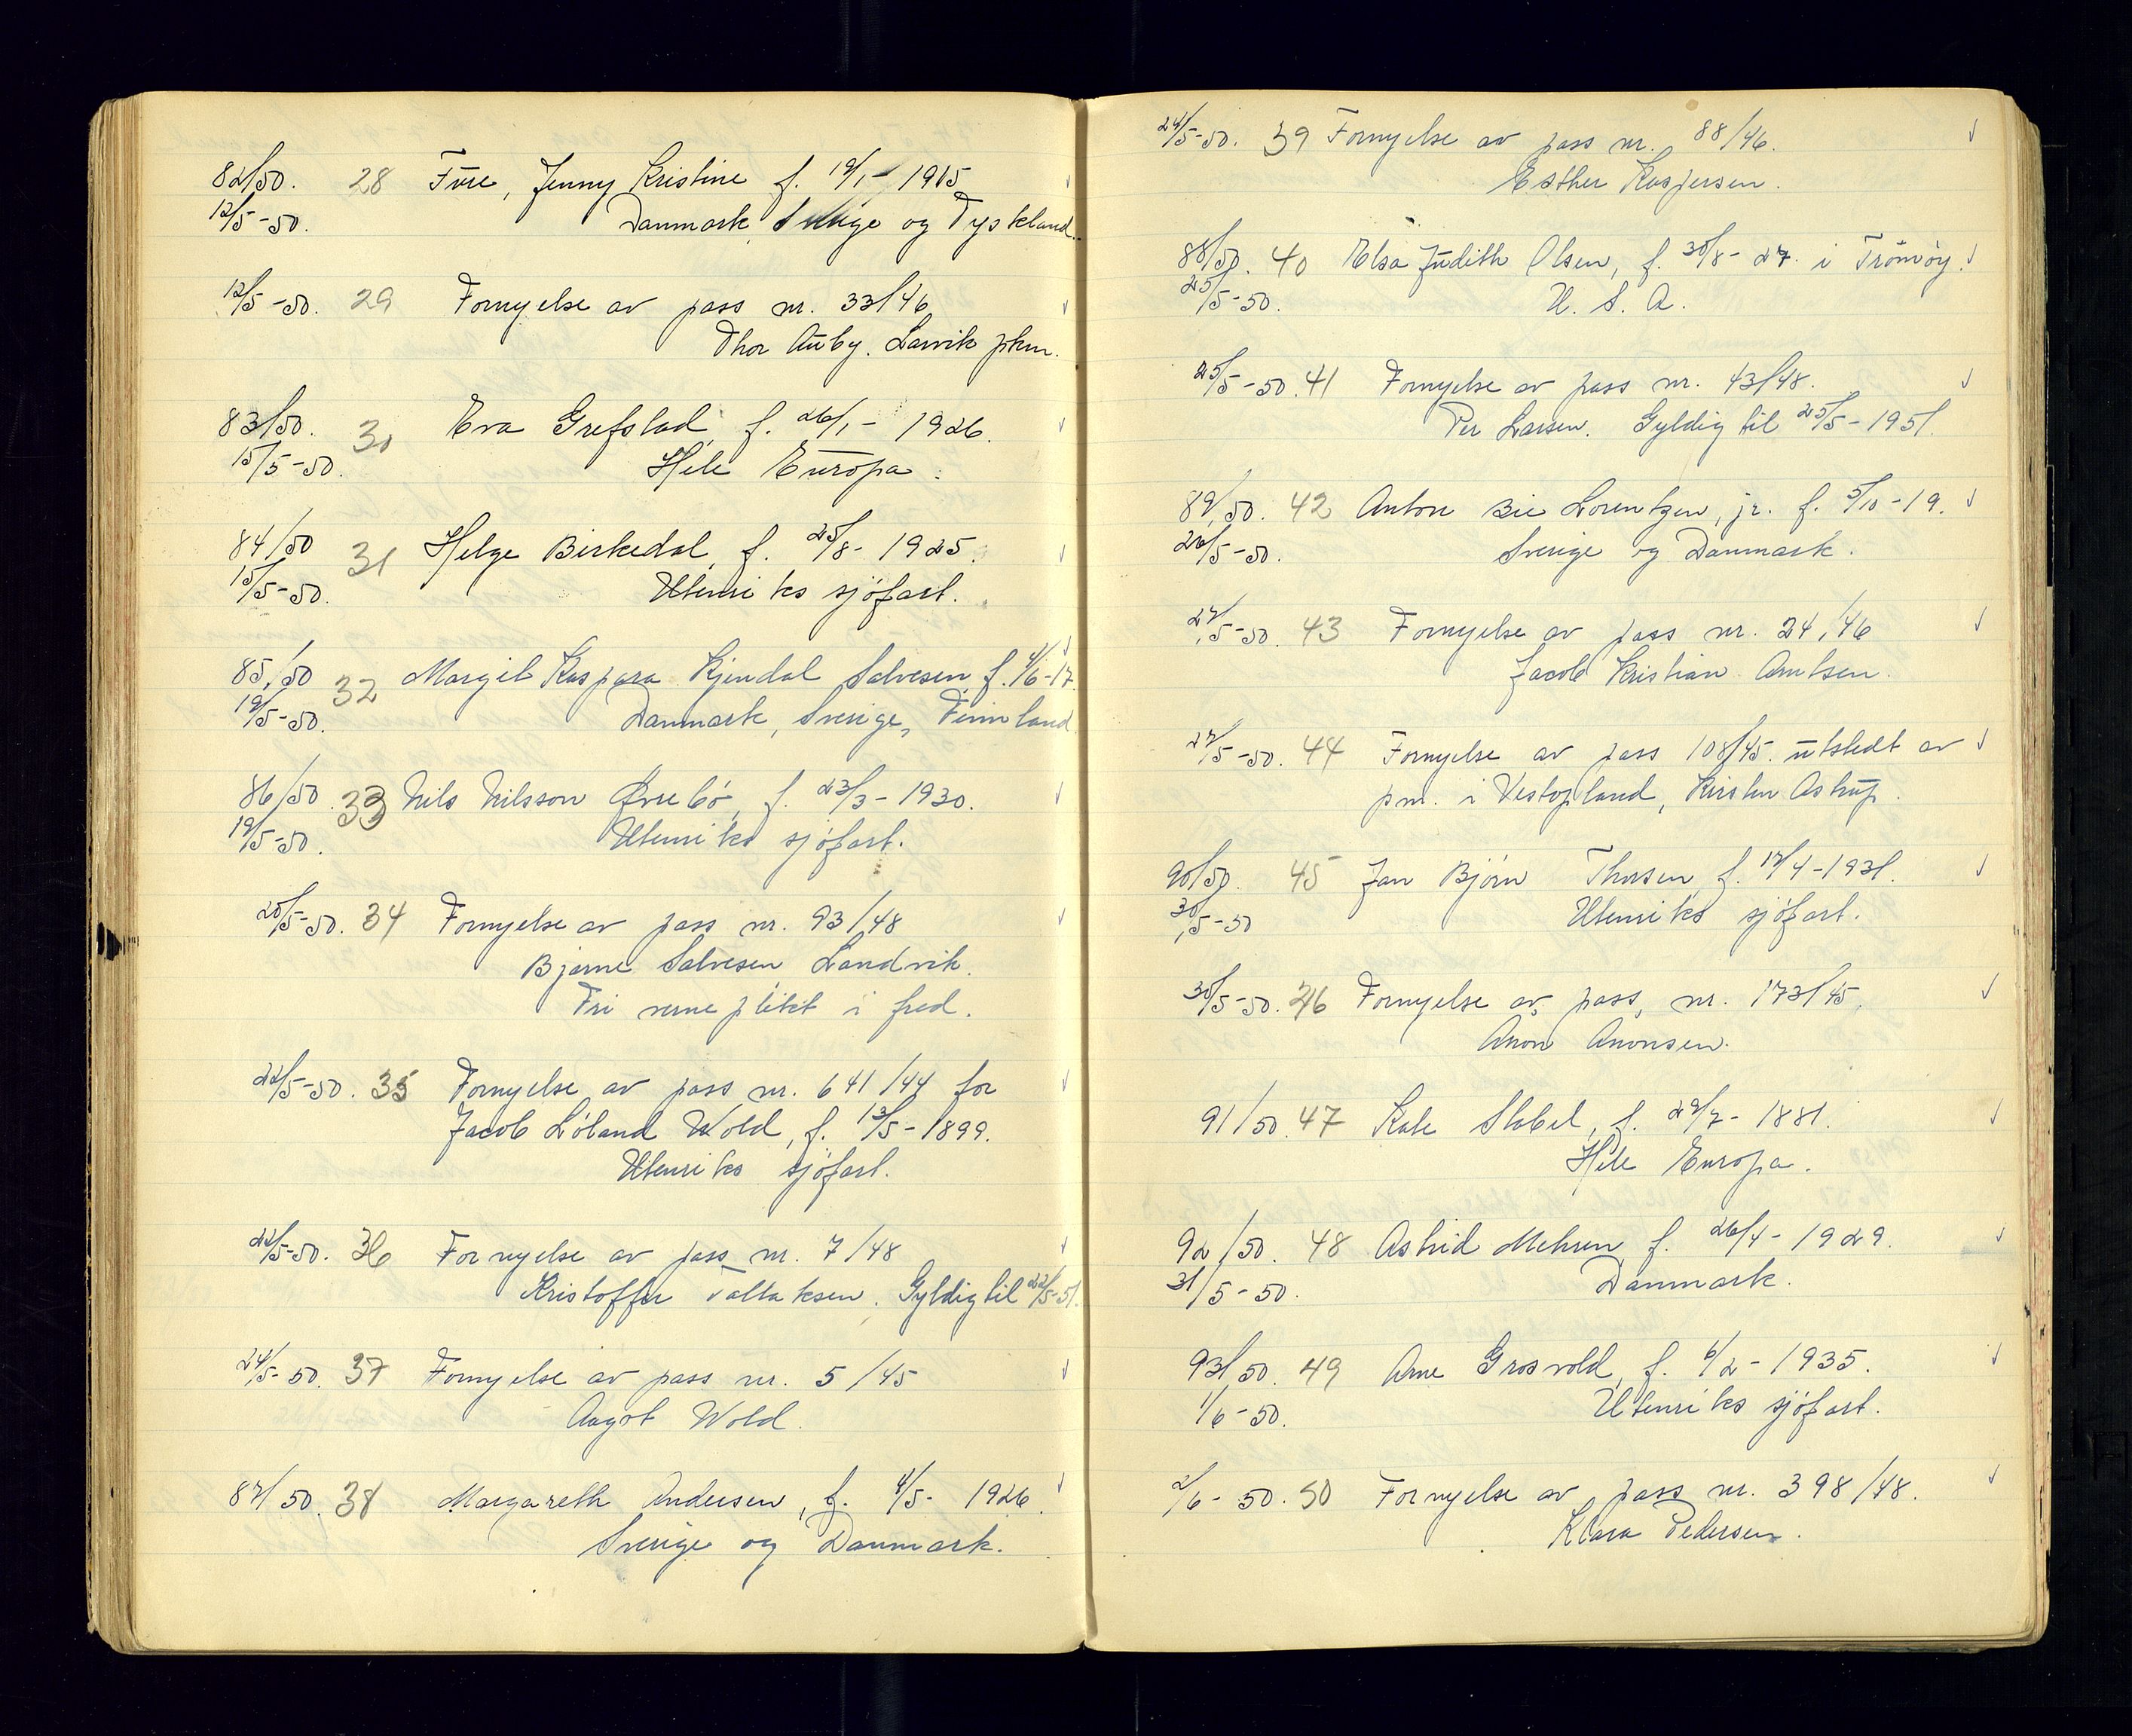 82/50. 28 Fure, Jenny Kristine f. 19/1 - 1915
12/5-50. Danmark, Sverige og Tyskland.
12/5-50. 29 Fornyelse av pass nr. 33/46
Thor Auby. Larvik pkm.
83/50. 30 Eva Grefstad, f. 26/1 - 1926.
15/5-50. Hele Europa.
84/50 31 Helge Birkedal, f. 25/8 - 1925.
15/5-50. Utenriks sjöfart.
85/50 32 Margit Kaspara Kjendal Salvesen f. 4/6-17.
19/5-50. Danmark, Sverige, Finnland
86/50. 33 Nils Nilsson Øvrebö, f. 23/3 - 1930.
19/5-50. Utenriks sjöfart.
20/5-50. 34 Fornyelse av pass nr. 93/48
Bjarne Salvesen Landvik.
Fri verneplikt i fred.
22/5-50. 35 Fornyelse av pass nr. 641/44 for
Jacob Löland Wold, f. 13/5-1899.
Utenriks sjöfart.
22/5-50. 36 Fornyelse av pass nr. 7/48
Kristoffer Tallaksen. Gyldig til 22/5-51.
24/5-50. 37 Fornyelse av pass nr. 5/45
Aagot Wold.
87/50. 38 Margareth Andersen, f. 4/5- 1926.
Sverige og Danmark.
24/5-50. 39 Fornyelse av pass nr. 88/46.
Esther Kaspersen.
88/50. 40 Elsa Judith Olsen, f. 30/8- 27. i Tromöy.
25/5-50. U. S. A.
25/5-50. 41 Fornyelse av pass nr. 43/48.
Per Larsen. Gyldig til 25/5-1951.
89/50. 42 Anton Bie Lorentzen, jr. f. 5/10-19.
26/5-50. Sverige og Danmark.
27/5-50. 43 Fornyelse av pass nr. 24/46
Jacob Kristian Arntsen.
27/5-50. 44 Fornyelse av pass 108/45. utstedt av
pm. i Vestopland, Kirsten Astrup.
90/50. 45 Jan Björn Thorsen, f. 17/4-1931.
30/5-50 Utenriks sjöfart.
30/5-50. 46 Fornyelse av pass nr. 173/45.
Anon Anonsen.
91/50. 47 Kate Stabel, f. 29/7- 1881.
Hele Europa.
92/50. 48 Astrid Mehren f. 26/4- 1929.
31/5-50. Danmark.
93/50. 49 Arne Grosvold, f. 6/2- 1935.
1/6-50. Utenriks sjöfart.
2/6-50. 50 Fornyelse av pass nr. 398/48.
Klara Pedersen.